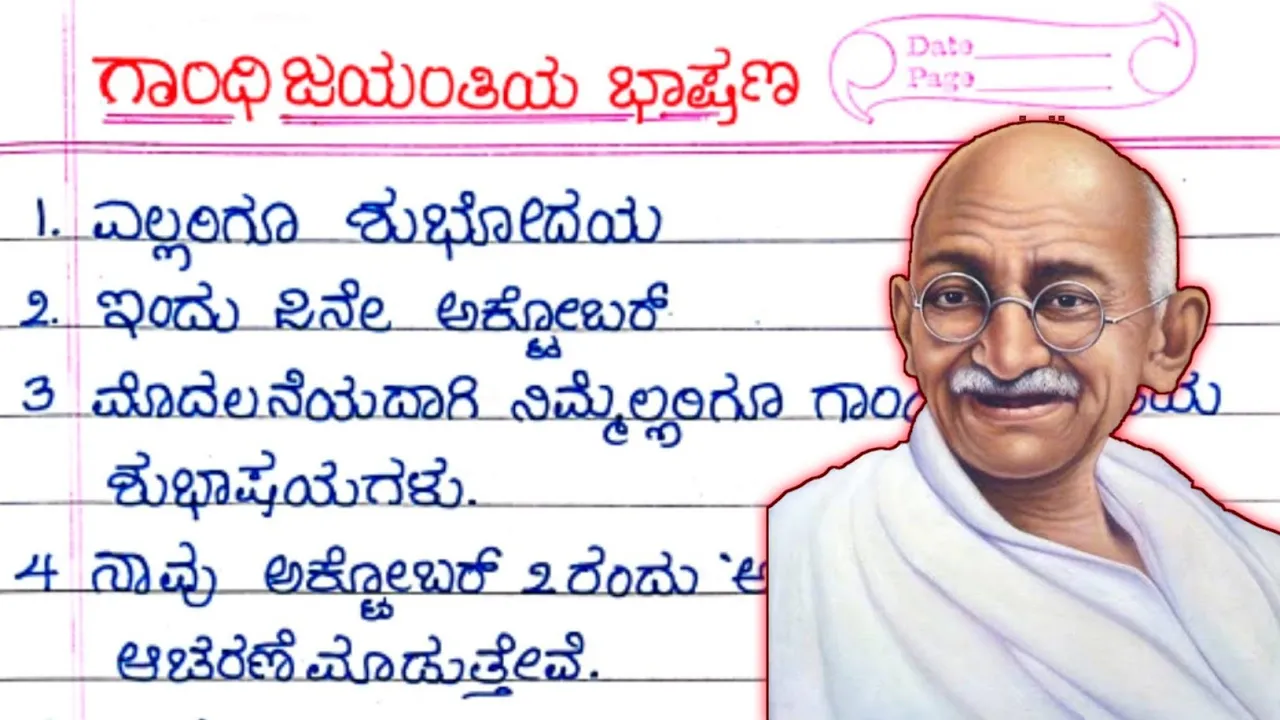 ಗಾಂಧಿ ಜಯಂತಿಯ ಭಾಷಣ
Date
Page
1. ಎಲ್ಲರಿಗೂ ಶುಭೋದಯ
2. ಇಂದು ೨ನೇ ಅಕ್ಟೋಬರ್
3 ಮೊದಲನೆಯದಾಗಿ ನಿಮ್ಮೆಲ್ಲರಿಗೂ
ಶುಭಾಷಯಗಳು.
4 ನಾವು ಅಕ್ಟೋಬರ್ 2 ರಂದು
ಆಚರಣೆ ಮಾಡುತ್ತೇವೆ.